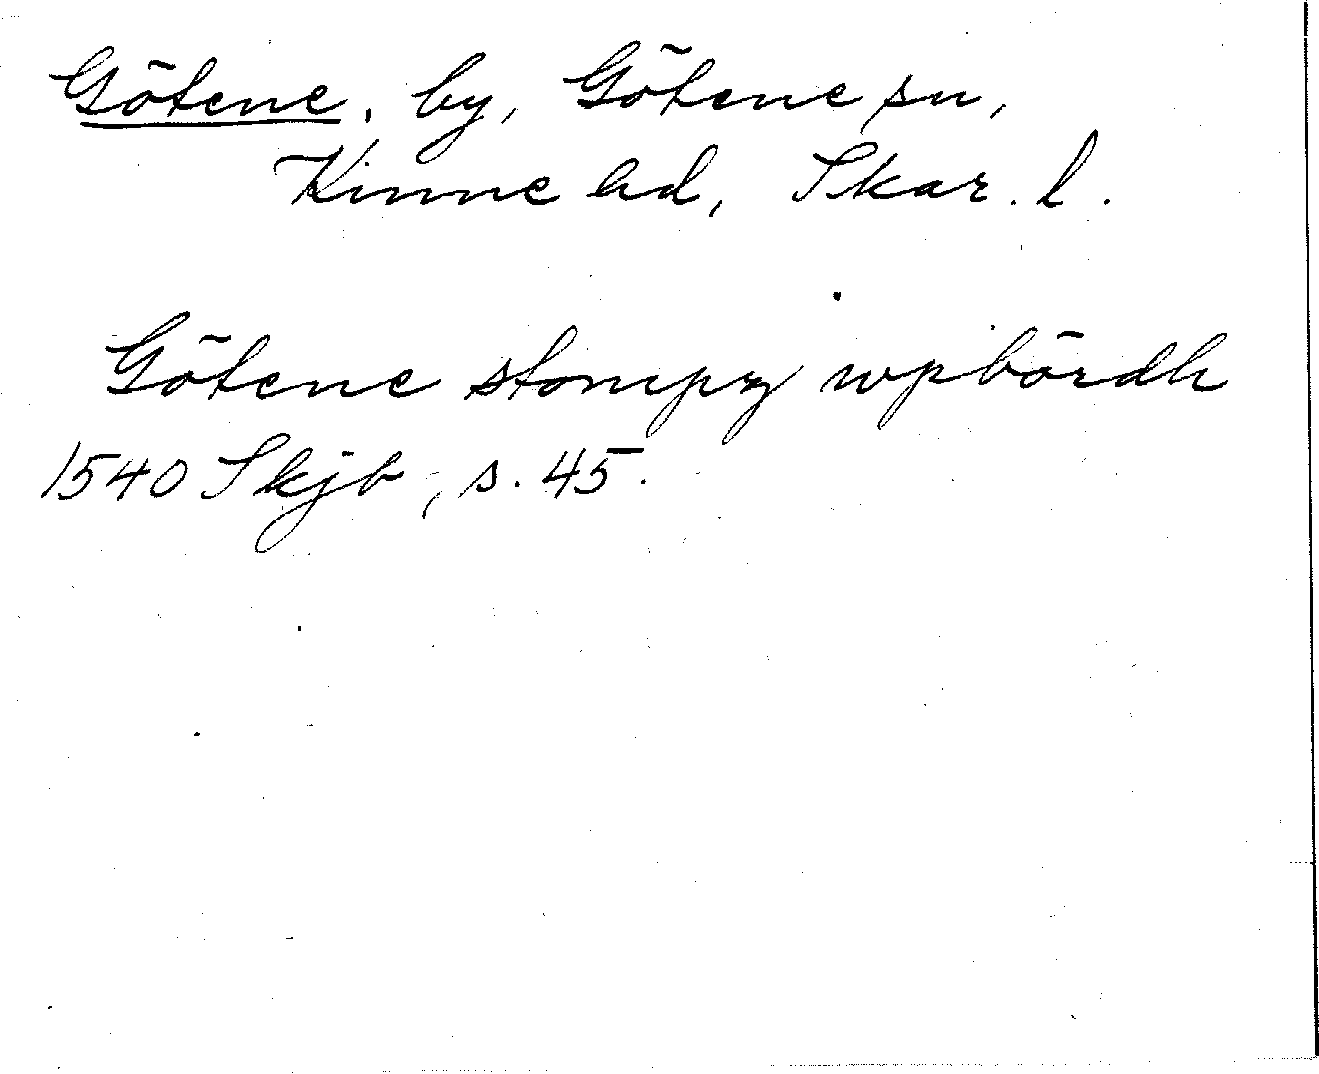 Götene, by, Götene sn,
Kinne hd, Skar. l.
Götene stompz wpbördh
1540 Skjb, s. 45.